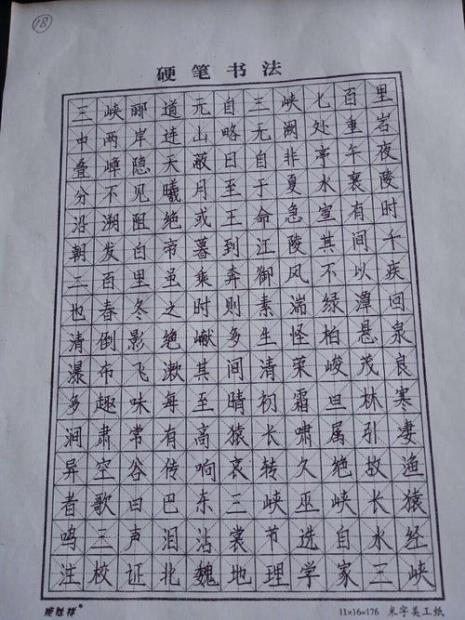 18
硬笔书法
三峡郦道元自三峡七百里
中两岸连山略无阙处重岩
叠嶂隐天蔽日自非亭午夜
分不见曦月至于夏水襄陵
沿溯阻绝或王命急宣有时
朝发白帝暮到江陵其间千
二百里虽乘奔御风不以疾
也春冬之时则素湍绿潭回
清倒影绝巘多生怪柏悬泉
瀑布飞漱其间清荣峻茂良
多趣味每至晴初霜旦林寒
涧肃常有高猿长啸属引凄
异空谷传响哀转久绝故渔
者歌曰巴东三峡巫峡长猿
鸣三声泪沾裳节选自水经
注校证北魏地理学家三峡
11×16=176 米字美工纸